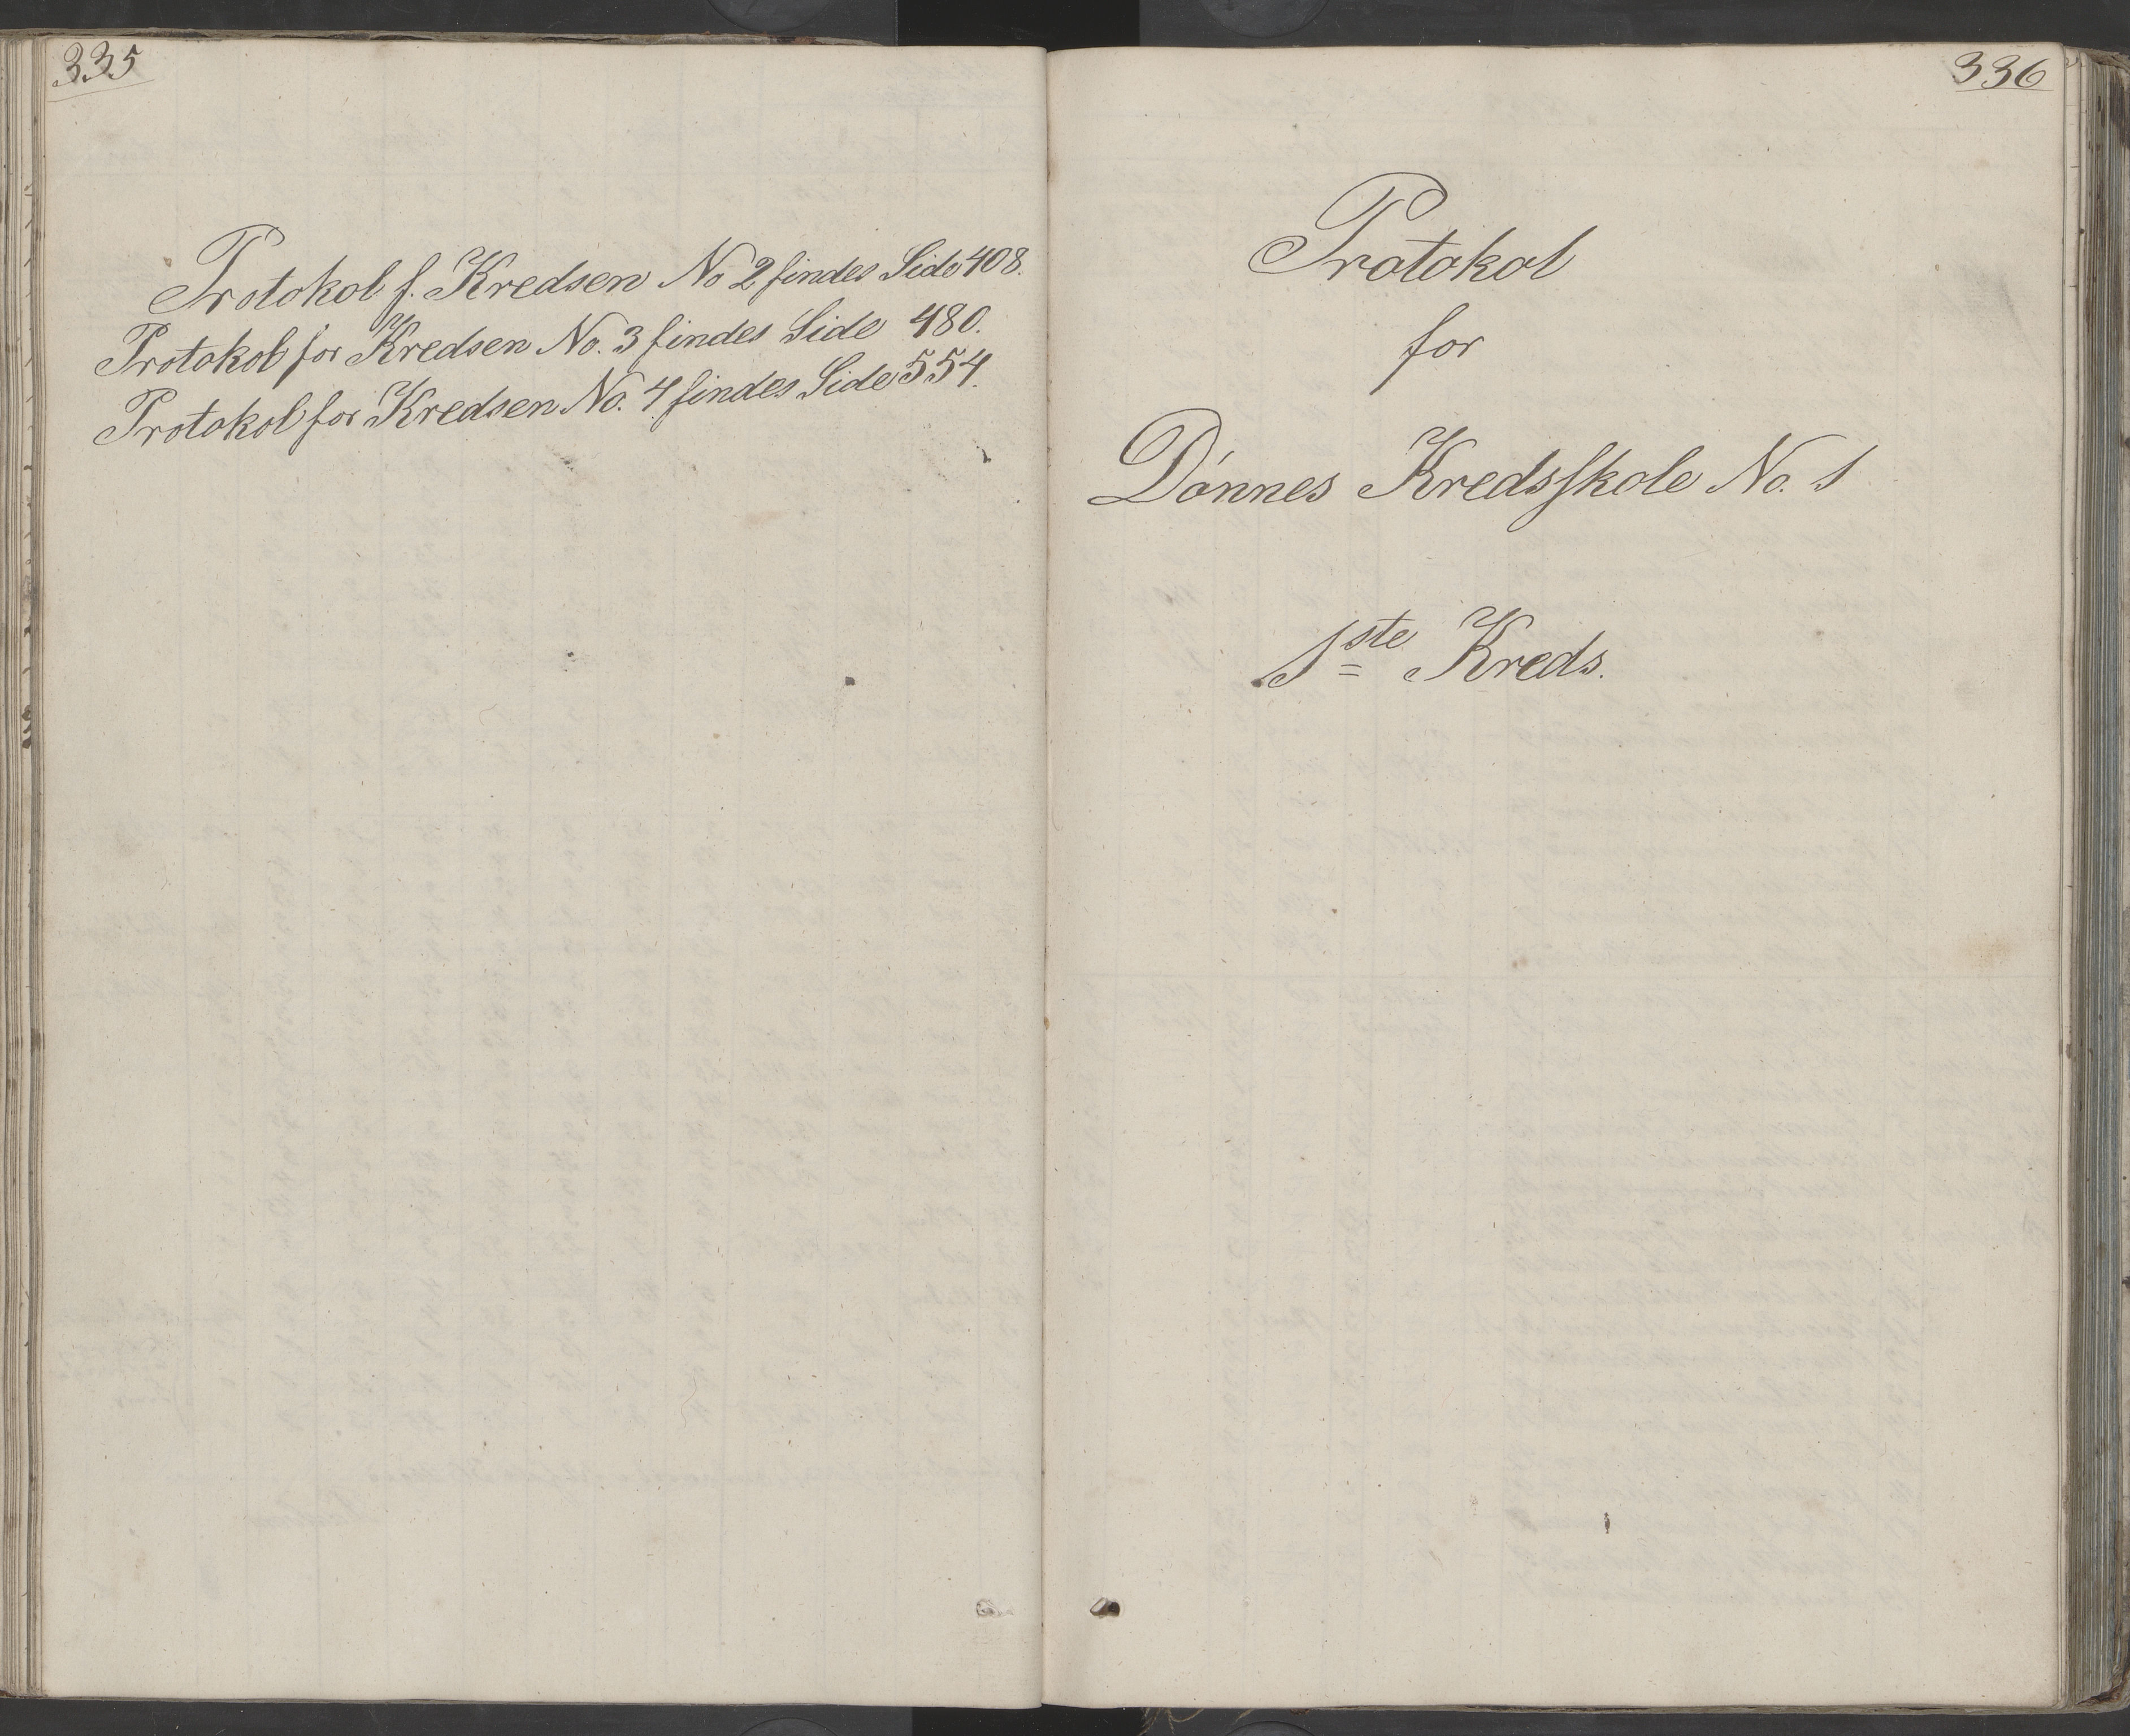 335
Protokol f. Kredsen No 2 findes Side 408.
Protokol for Kredsen No. 3 findes Side 480.
Protokol for Kredsen No. 4 findes Side 554.
336
Protokol
for
Dónnes Kredsskole No. 1
1ste Kreds.